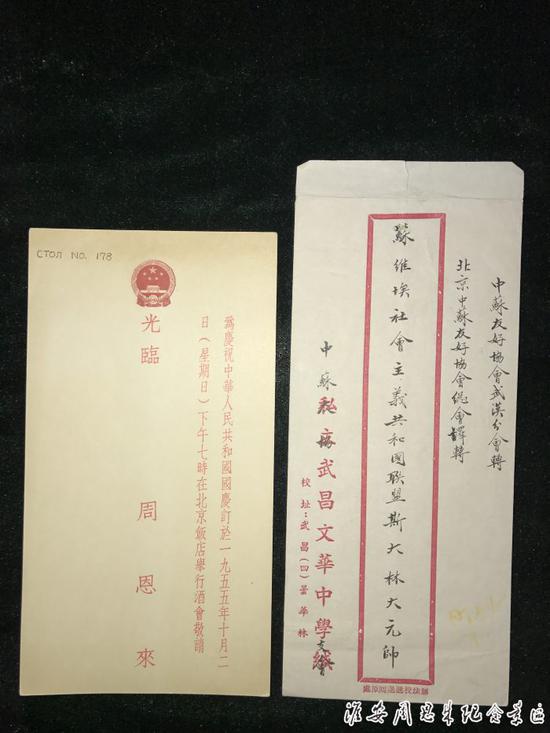 СТОЛ NO. 178
爲慶祝中華人民共和國國慶訂於一九五五年十月二
日(星期日)下午七時在北京飯店舉行酒會敬請
光臨
周恩來
中蘇友好協會武漢分會轉
北京中蘇友好協會總會譯轉
蘇維埃社會主義共和國聯盟斯大林大元帥
中蘇友協武昌文華中學支會
校址:武昌(四)曇華林
無法投遞退回原處
淮安周恩来纪念景区